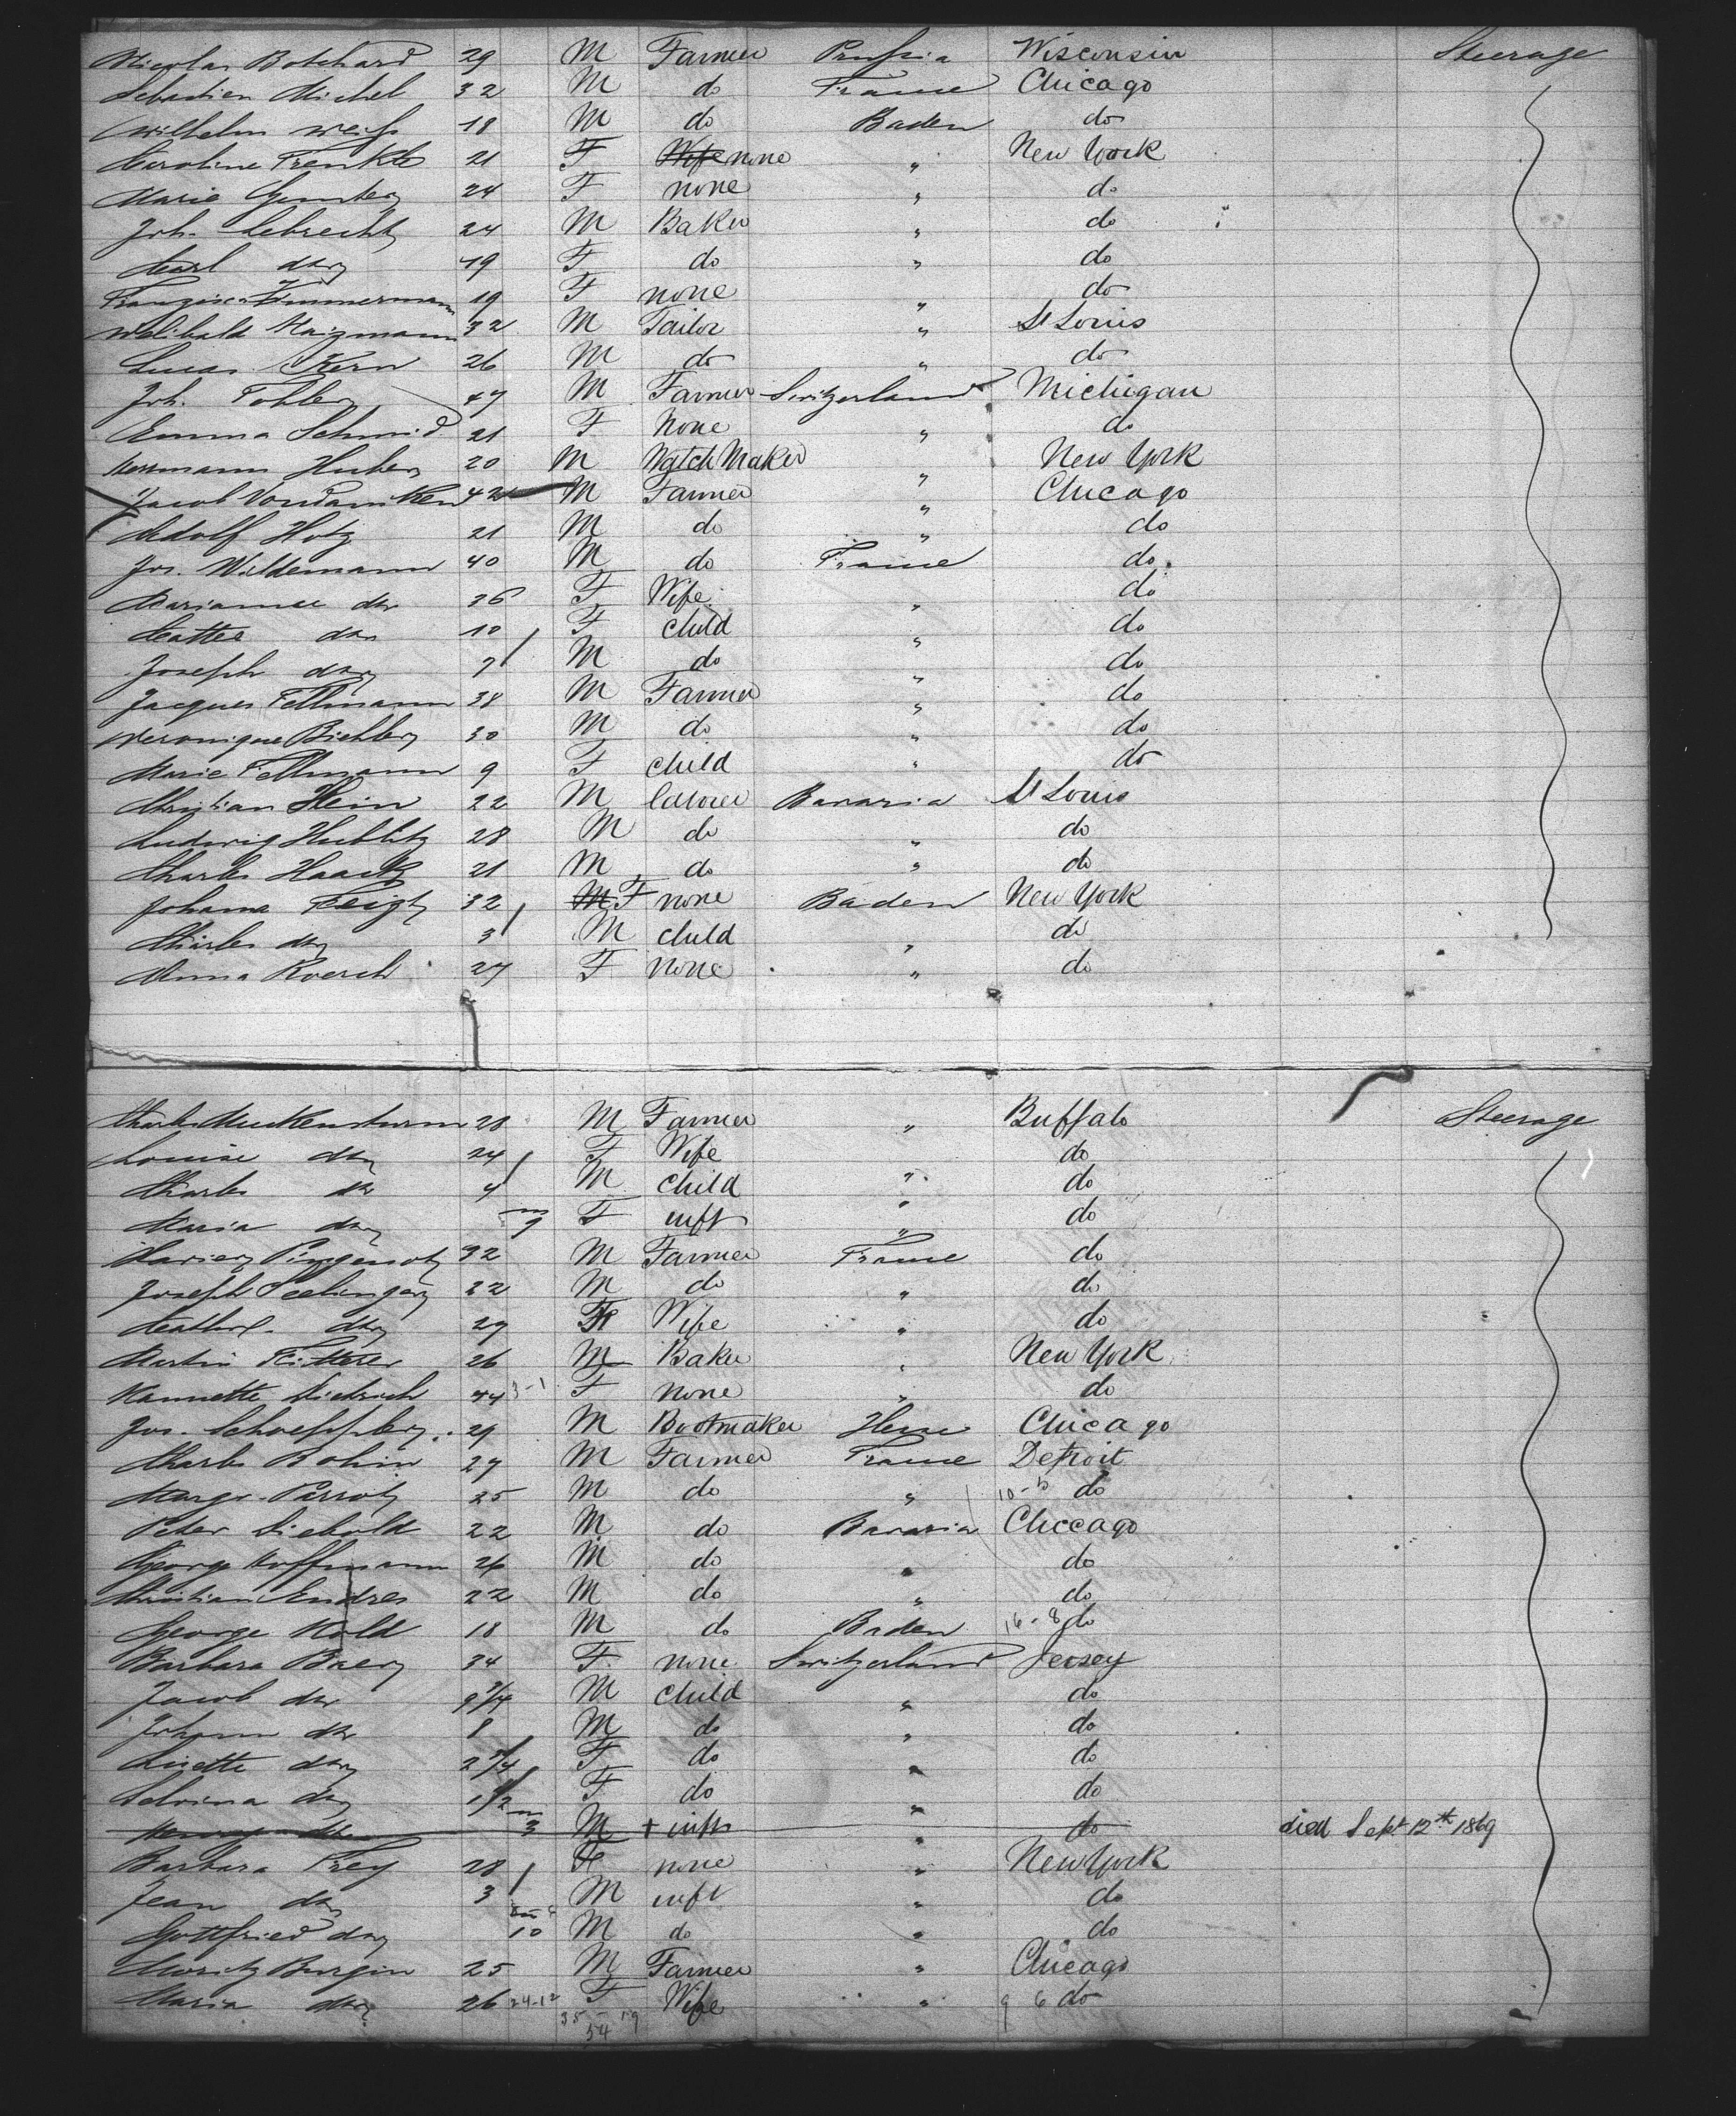 Nicolas Botchard 29 M Farmer Prussia Wisconsin Steerage
Sebastien Michel 32 M do France Chicago
Wilhelm Weiss 18 M do Baden do
Caroline Trenkle 21 F Wife none " New York
Marie 24 F none " do
Joh. Lebrecht 24 M Baker " do
Carl do 19 F do " do
Franzisca Zimmermann 19 F none " do
Walibald Maizmann 32 M Tailor " St Louis
Lucas Kern 26 M do " do
Joh. Tobler 47 M Farmer Switzerland Michigan
Emma Schmid 21 F None " do
Hermann Huber 20 M Watch Maker " New York
Jacob Vondaniken 42 M Farmer " Chicago
Adolf Hotz 21 M do " do
Jos. Wildemann 40 M do France do
Marianne do 36 F Wife " do
do 10 F child " do
Joseph do 7 M do " do
Jacques Fellmann 38 M Farmer " do
Veronique Biehler 30 M do " do
Marie Fellmann 9 F child " do
Christian Hein 22 M laborer Bavaria St Louis
Ludwig Hublitz 28 M do " do
Charles Haack 21 M do " do
Johanna 32 M F none Baden New York
Charles do 3 M child " do
Anna Roesch 27 F none " do
Charles Muckensturm 28 M Farmer " Buffalo Steerage
Louise do 24 F Wife do
Charles do 4 M child " do
Maria do m 9 F inft " do
Xavier 32 M Farmer France do
Joseph Seelinger 22 M do " do
Cathrl. do 29 F Wife " do
Martin Fitterer 26 M Baker " New York
Nannette Dietrich 44 3-1 F none " do
Jos. Schoeffler 29 M Bootmaker Hesse Chicago
Charles Bohin 27 M Farmer France Detroit
Margr. Parrot 25 M do " 10-5 do
Peter Diebold 22 M do Bavaria Chicago
George Hoffmann 26 M do " do
Christian Andres 22 M do " do
George Kold 18 M do Baden 16-8 do
Barbara Baer 34 F none Switzerland Jersey
Jacob do 9 3/4 M child " do
Johann do 8 M do " do
Lisette do 2 3/4 F do " do
Selvina do 1 1/2 F do " do
do m 3 M + inft " do died Sept 12th 1869
Barbara Frey 28 F none " New York
Jean do 3 M inft " do
Gottfried do 10 M do " do
Moritz Burgin 25 M Farmer " Chicago
Maria do 26 24-12 F Wife " 9 6 do
35 - 19
54